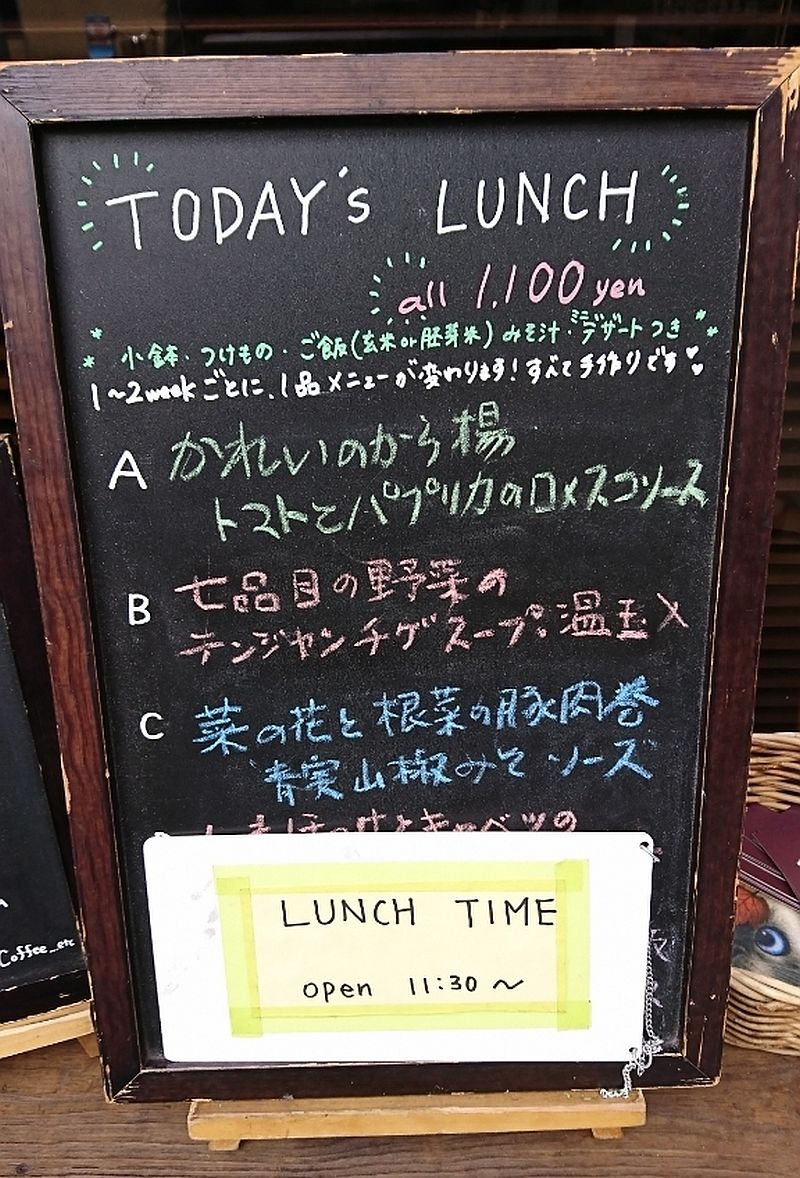 TODAY's LUNCH
all 1.100 yen
小鉢・つけもの・ご飯(玄米or胚芽米)みそ汁・ミニデザートつき
1~2weekごとに、1品メニューが変わります!すべて手作りです
A かれいのから揚
トマトとパプリカのロメスコソース
B 七品目の野菜の
テンジャンチゲスープ。温玉入
C 菜の花と根菜の豚肉巻
青実山椒みそソーズ
とキャベツの
LUNCH TIME
open 11:30 ~
Coffee_etc